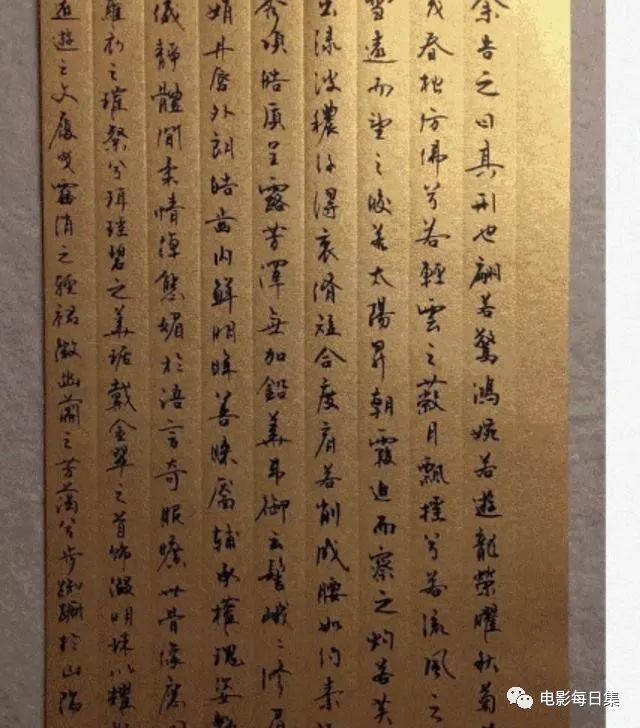 余告之曰其形也翩若驚鴻婉若遊龍榮曜秋菊
茂春松彷彿兮若輕雲之蔽月飄颻兮若流風之
雪遠而望之皎若太陽昇朝霞迫而察之灼若芙
出淥波穠纤得衷脩短合度肩若削成腰如约素
秀項皓质呈露芳澤無加鉛華弗御云髻峨峨修眉
娟丹唇外朗皓齿内鮮明眸善睞靨辅承權瑰姿艷
儀静體閒柔情綽態媚於语言奇服曠世骨像應
羅衣之璀粲兮珥瑶碧之華琚戴金翠之首饰缀明珠以耀
遠遊之文履曳霧绡之輕裾微幽蘭之芳蔼兮步踟蹰於山隅
电影每日集